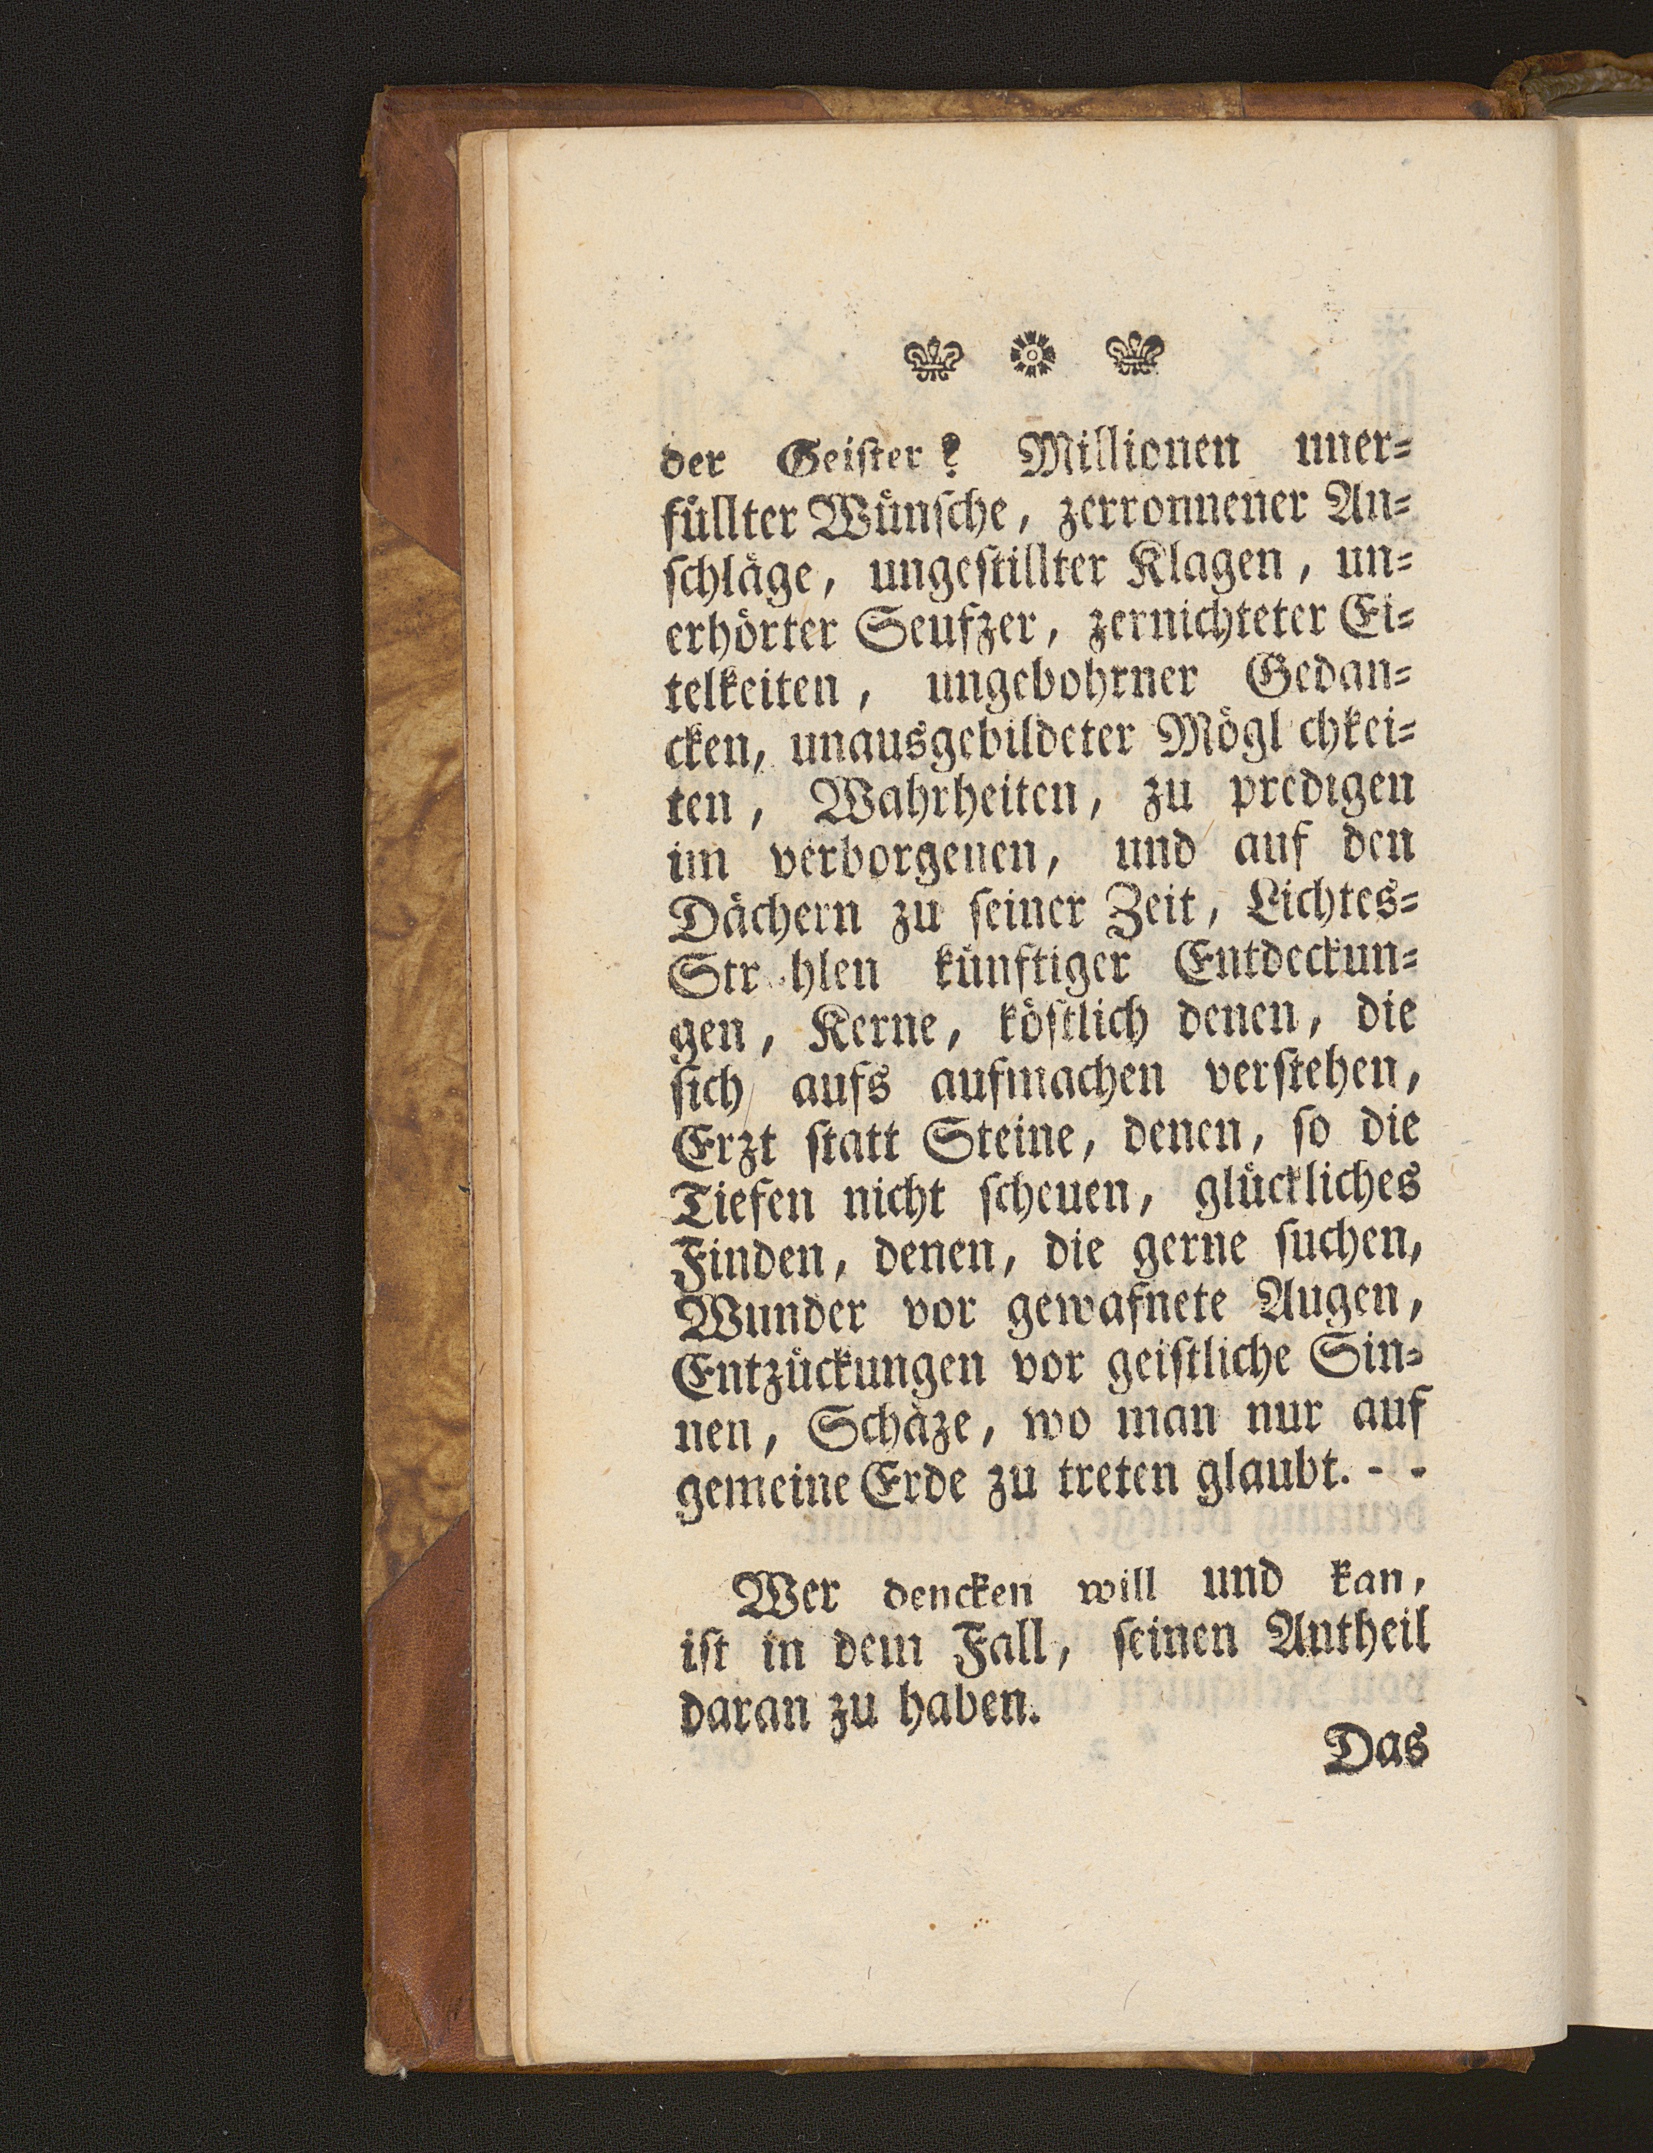 der Geiſter? Millionen uner⸗
füllter Wünſche, zerronnener An⸗
ſchläge, ungeſtillter Klagen, un⸗
erhörter Seufzer, zernichteter Ei⸗
telkeiten, ungebohrner Gedan⸗
cken, unausgebildeter Mögl chkei⸗
ten, Wahrheiten, zu predigen
im verborgenen, und auf den
Dächern zu ſeiner Zeit, Lichtes⸗
Str hlen künftiger Entdeckun⸗
gen, Kerne, köſtlich denen, die
ſich aufs aufmachen verſtehen,
Erzt ſtatt Steine, denen, ſo die
Tiefen nicht ſcheuen, glückliches
Finden, denen, die gerne ſuchen,
Wunder vor gewafnete Augen,
Entzückungen vor geiſtliche Sin⸗
nen, Schäze, wo man nur auf
gemeine Erde zu treten glaubt. - -
Wer dencken will und kan,
iſt in dem Fall, ſeinen Antheil
daran zu haben.
Das